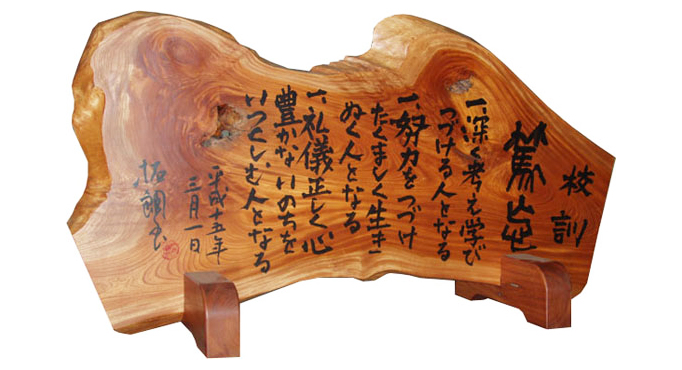 校訓
篤志
一、深く考え学び
つづける人となる
一、努力をつづけ
たくましく生き
ぬく人となる
一、礼儀正しく心
豊かないのちを
いつくしむ人となる
平成十五年
三月一日
拓朗書